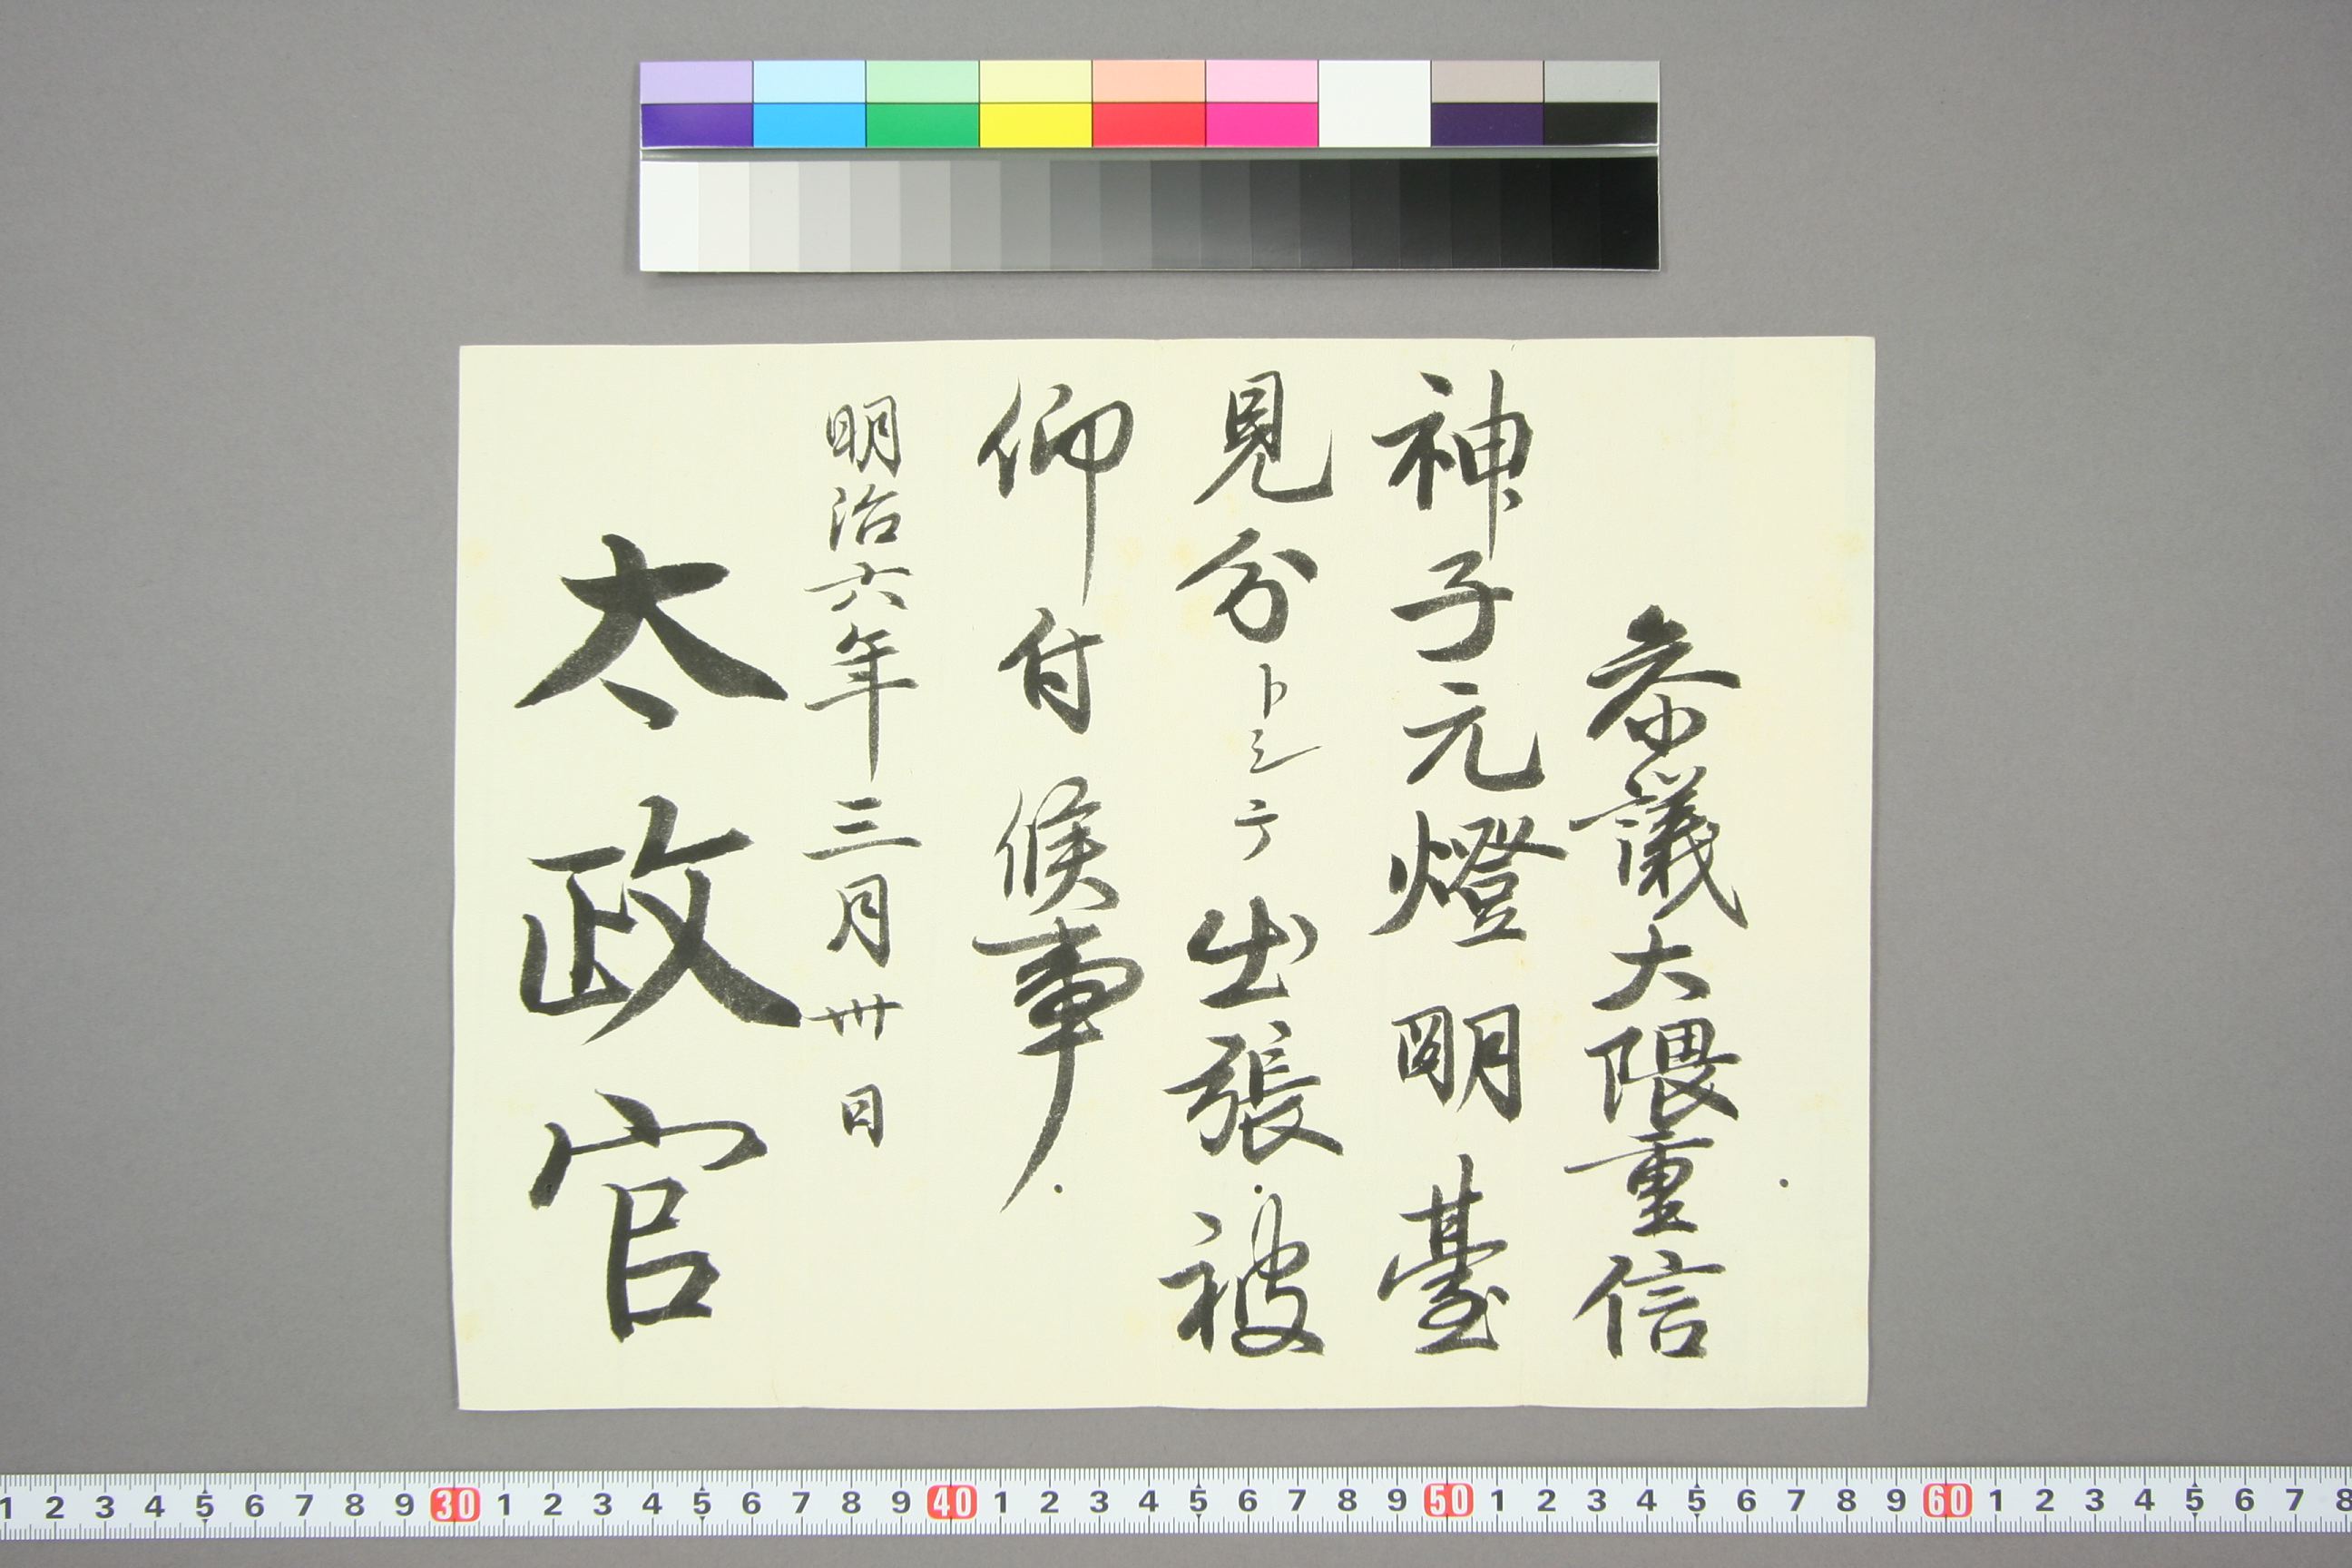 参議大隈重信
神子元燈明臺
見分トシテ出張被
仰付候事
明治六年三月卅日
太政官
1 2 3 4 5 6 7 8 9 30 1 2 3 4 5 6 7 8 9 40 1 2 3 4 5 6 7 8 9 50 1 2 3 4 5 6 7 8 9 60 1 2 3 4 5 6 7 8